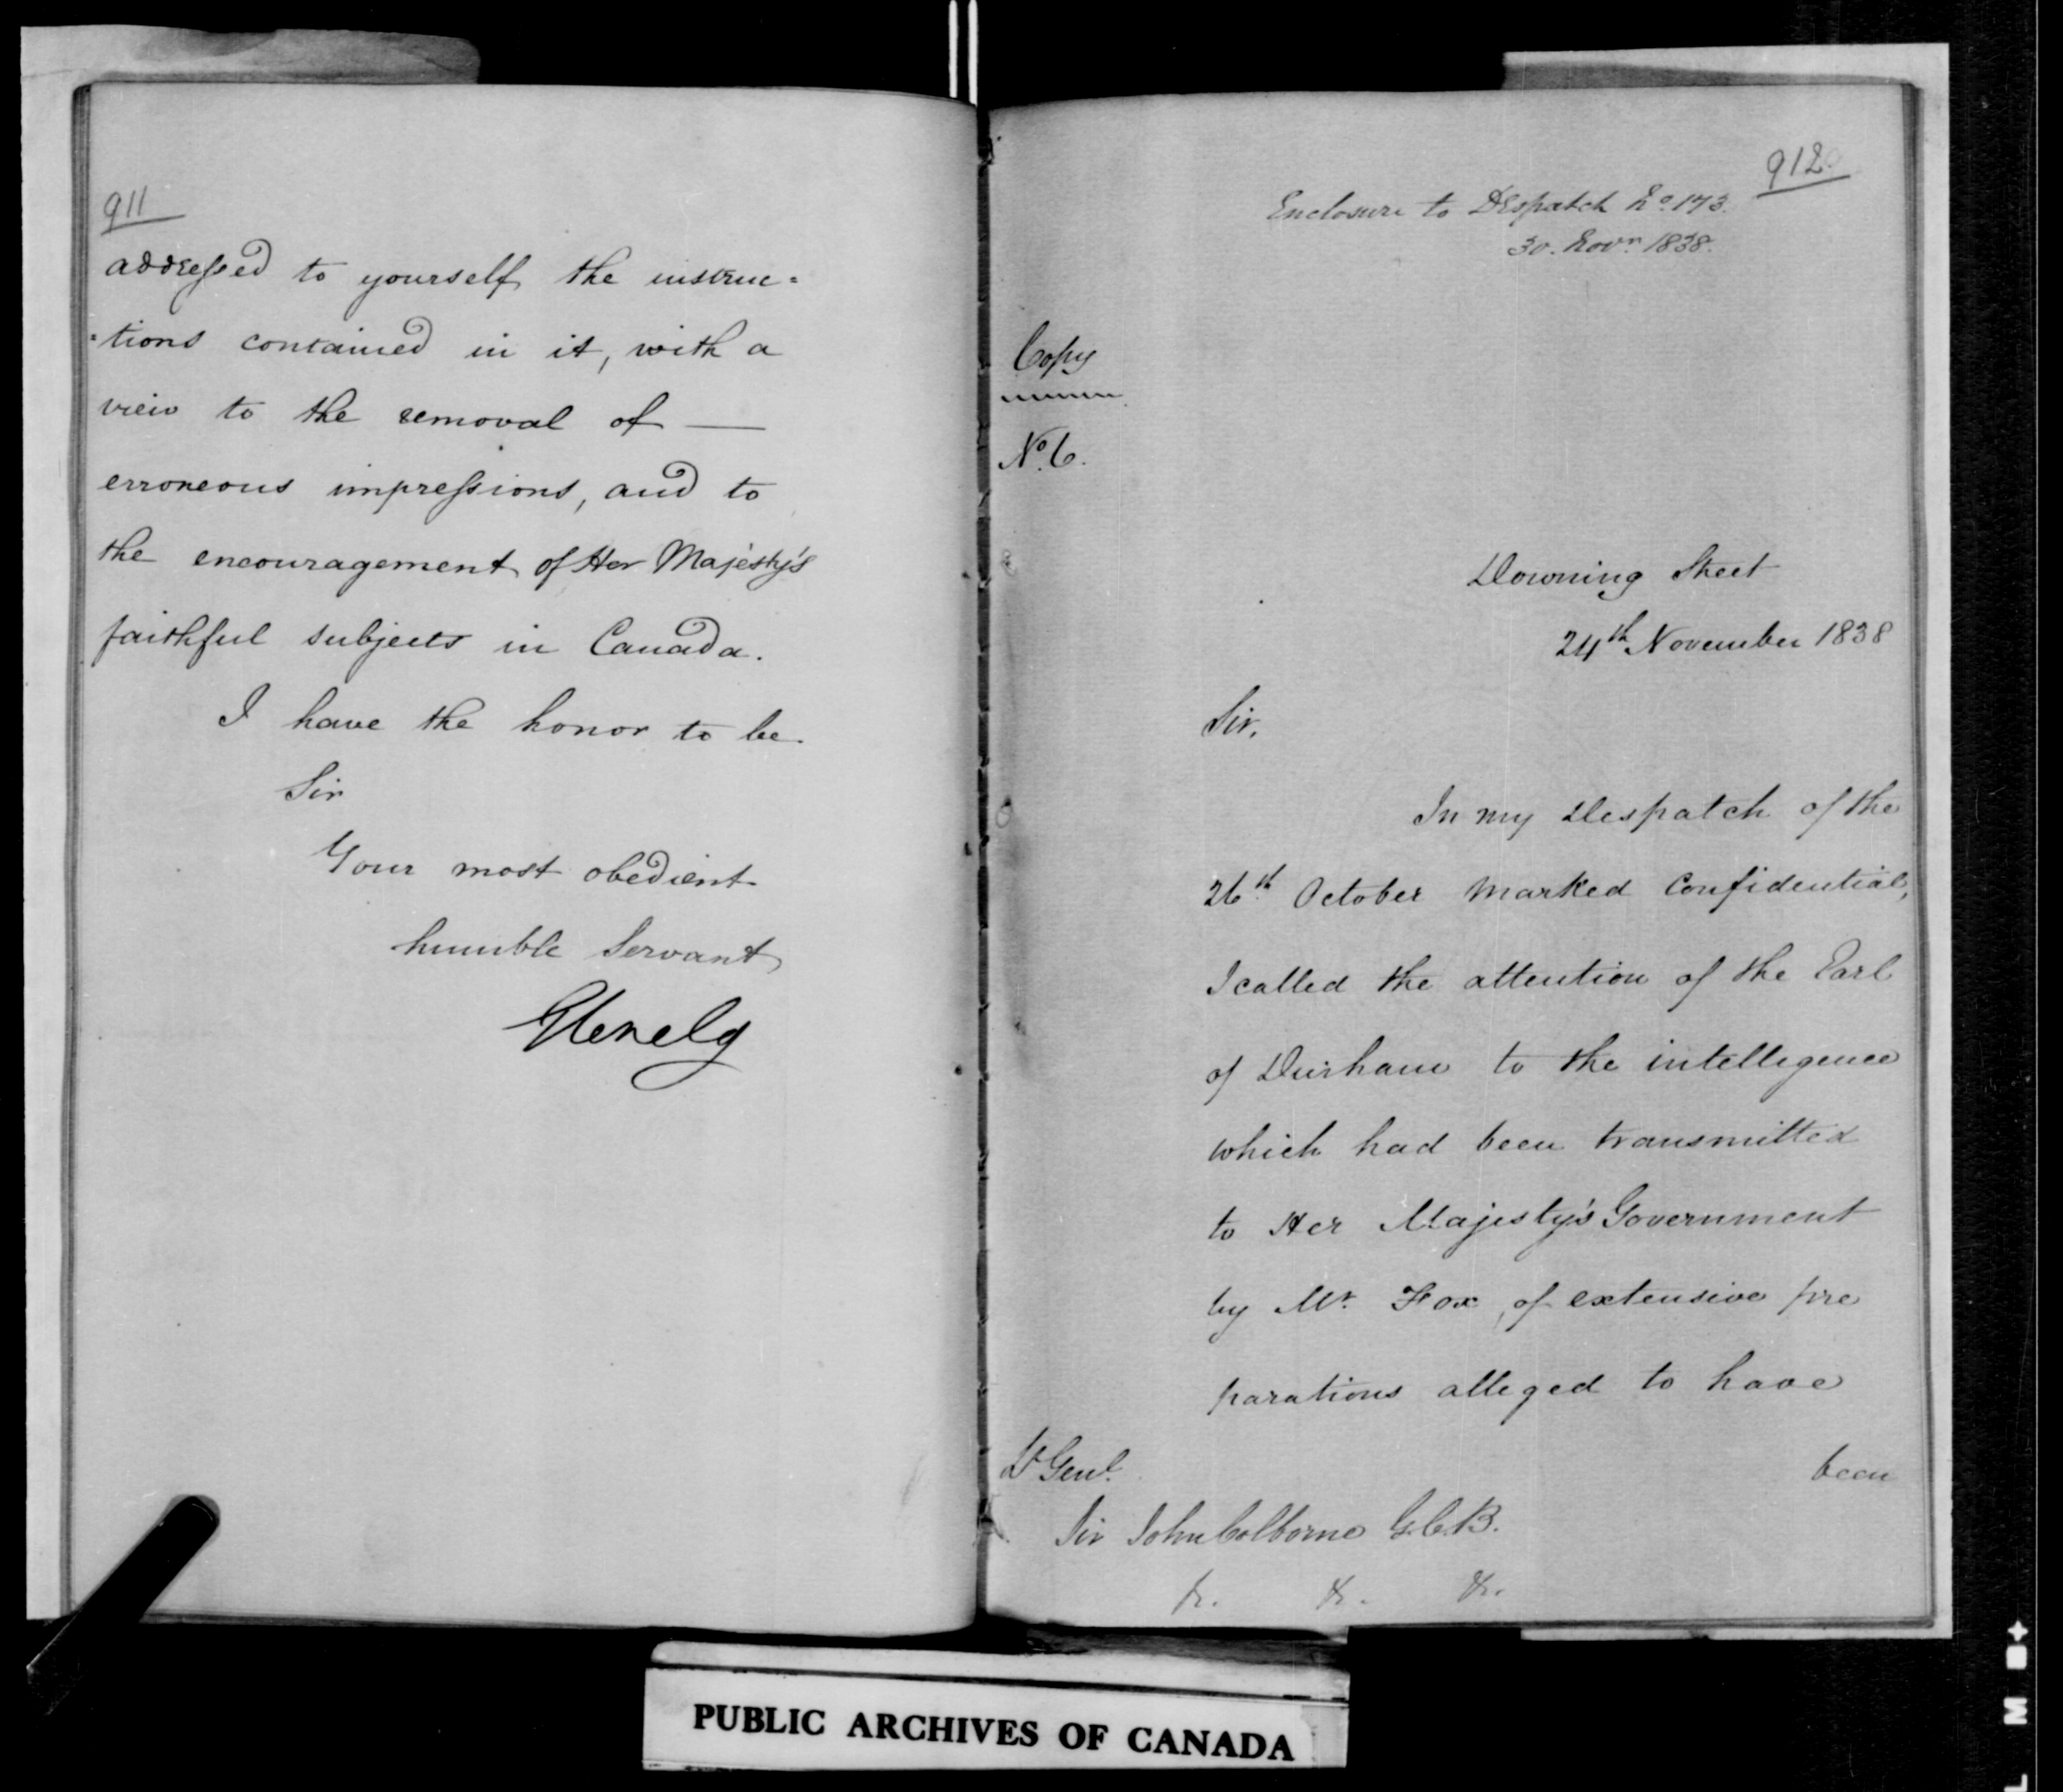 911
addressed to yourself the instruc=
=tions contained in it, with a
view to the removal of —
erroneous impressions, and to
the encouragement of Her Majesty's
faithful subjects in Canada.
I have the honor to be
Sir
Your most obedient
humble Servant
Glenelg
912
Enclosure to Despatch No. 173.
30. Novr. 1838.
Copy
No. 6.
Downing Street
24th November 1838
Sir,
In my Despatch of the
26th October marked Confidential,
I called the attention of the Earl
of Durham to the intelligence
which had been transmitted
to Her Majesty's Government
by Mr. Fox, of extensive pre
parations alleged to have
been
Lt Genl.
Sir John Colborne G.C.B.
&c. &c. &c.
PUBLIC ARCHIVES OF CANADA